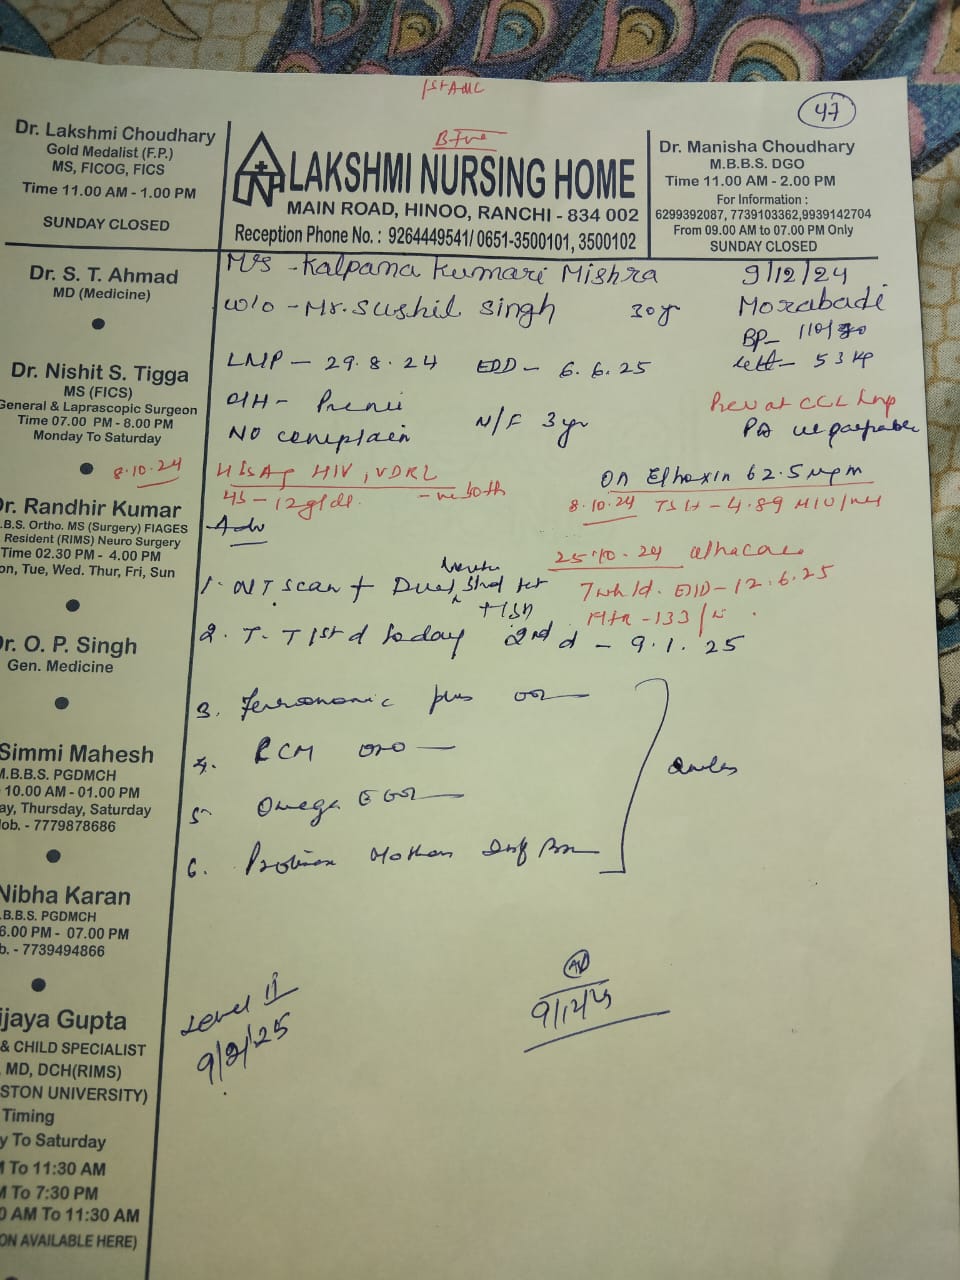 1st ANC
47
B +ve
Dr. Lakshmi Choudhary
Gold Medalist (F.P.)
MS, FICOG, FICS
Time 11.00 AM - 1.00 PM
SUNDAY CLOSED
LAKSHMI NURSING HOME
MAIN ROAD, HINOO, RANCHI - 834 002
Reception Phone No. : 9264449541/ 0651-3500101, 3500102
Dr. Manisha Choudhary
M.B.B.S. DGO
Time 11.00 AM - 2.00 PM
For Information :
6299392087, 7739103362,9939142704
From 09.00 AM to 07.00 PM Only
SUNDAY CLOSED
Dr. S. T. Ahmad
MD (Medicine)
Dr. Nishit S. Tigga
MS (FICS)
General & Laprascopic Surgeon
Time 07.00 PM - 8.00 PM
Monday To Saturday
Dr. Randhir Kumar
.B.S. Ortho. MS (Surgery) FIAGES
Resident (RIMS) Neuro Surgery
Time 02.30 PM - 4.00 PM
on, Tue, Wed. Thur, Fri, Sun
Dr. O. P. Singh
Gen. Medicine
Simmi Mahesh
M.B.B.S. PGDMCH
10.00 AM - 01.00 PM
ay, Thursday, Saturday
ob. - 7779878686
Nibha Karan
.B.B.S. PGDMCH
6.00 PM - 07.00 PM
b. - 7739494866
ijaya Gupta
& CHILD SPECIALIST
MD, DCH(RIMS)
STON UNIVERSITY)
Timing
y To Saturday
M To 11:30 AM
M To 7:30 PM
0 AM To 11:30 AM
ON AVAILABLE HERE)
Mrs - Kalpana Kumari Mishra 9/12/24
w/o - Mr. Sushil Singh 30 yr Morabadi
BP - 110/80
LMP - 29.8.24 EDD - 6.6.25 53 kg
O/H - Primi N/F 3 yr Rev at CCL
No complain PA
8.10.24 HBsAg HIV, VDRL - ve both On Elhoxin 62.5 mgm
Hb - 12 g/dl. 8.10.24 TSH - 4.89 MIU/ml
Adv
25.10.24
1. NT scan + Dual test 7 wk 1d. EDD - 12.6.25
+ TSH FHR - 133/
2. T.T 1st d today 2nd d - 9.1.25
3. plus
4. RCM
5. Omega
6. Protinex Mother
Level II
9/2/25
9/12/25